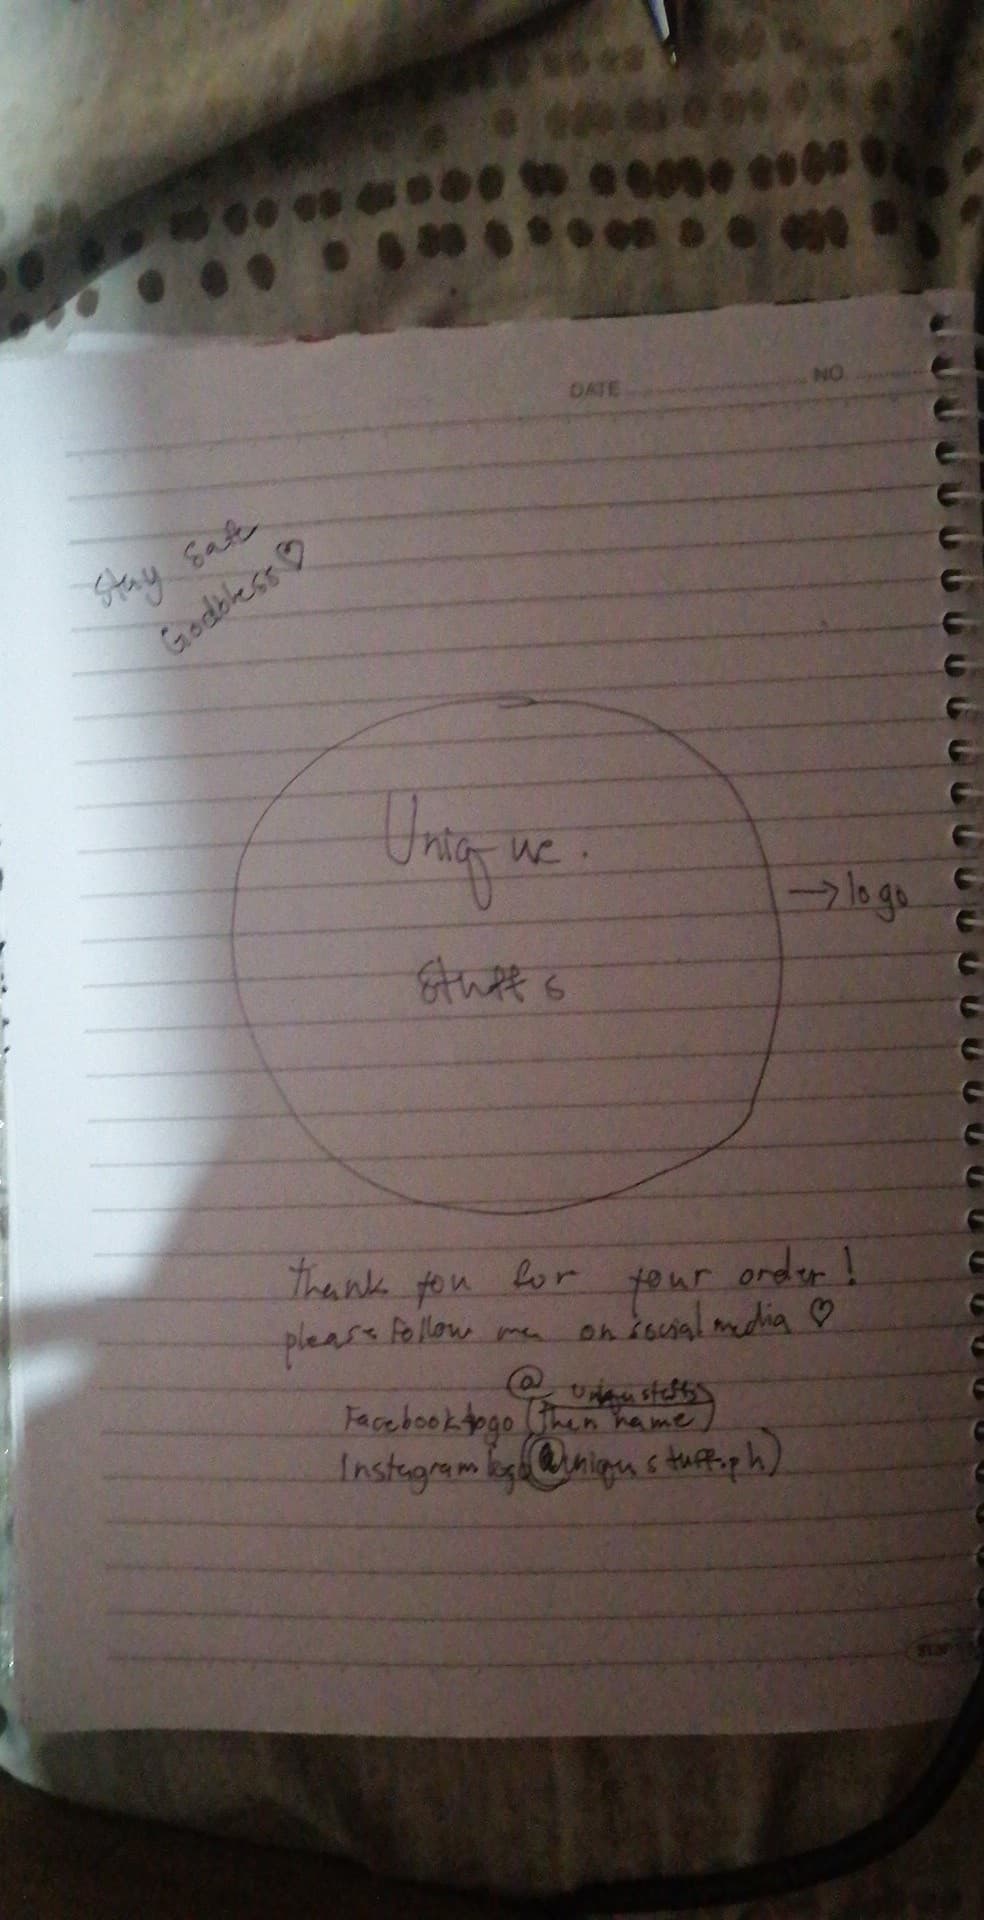 DATE NO
Stay safe
Godbless ♡
Unique
Stuffs
→ logo
Thank you for your order!
please follow me on social media ♡
@
Facebook logo (then name)
Instagram logo @uniqustuff.ph)